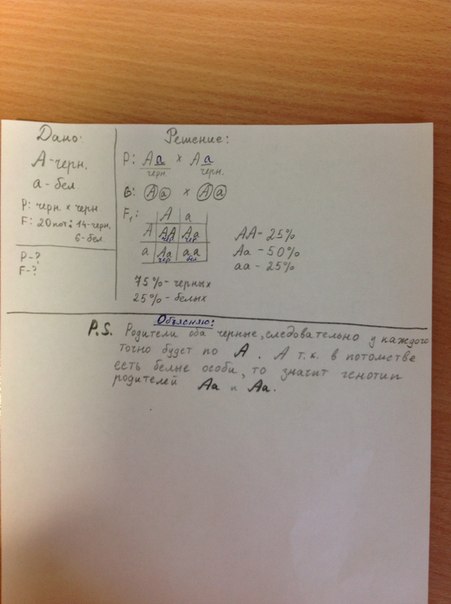 Дано:
А-черн.
а-бел
Р: черн. х черн
F: 20 пот: 14-черн.
6-бел.
Р-?
F-?
Решение:
Р: Аа х Аа
черн. черн.
G: А а х А а
F₁:
А а
А АА Аа
чер чер
а Аа аа
чер бел
АА- 25%
Аа- 50%
аа- 25%
75%- черных
25%- белых
Объясняю:
P.S. Родители оба черные, следовательно у каждого
точно будет по А. А т.к. в потомстве
есть белые особи, то значит генотип
родителей Аа и Аа.